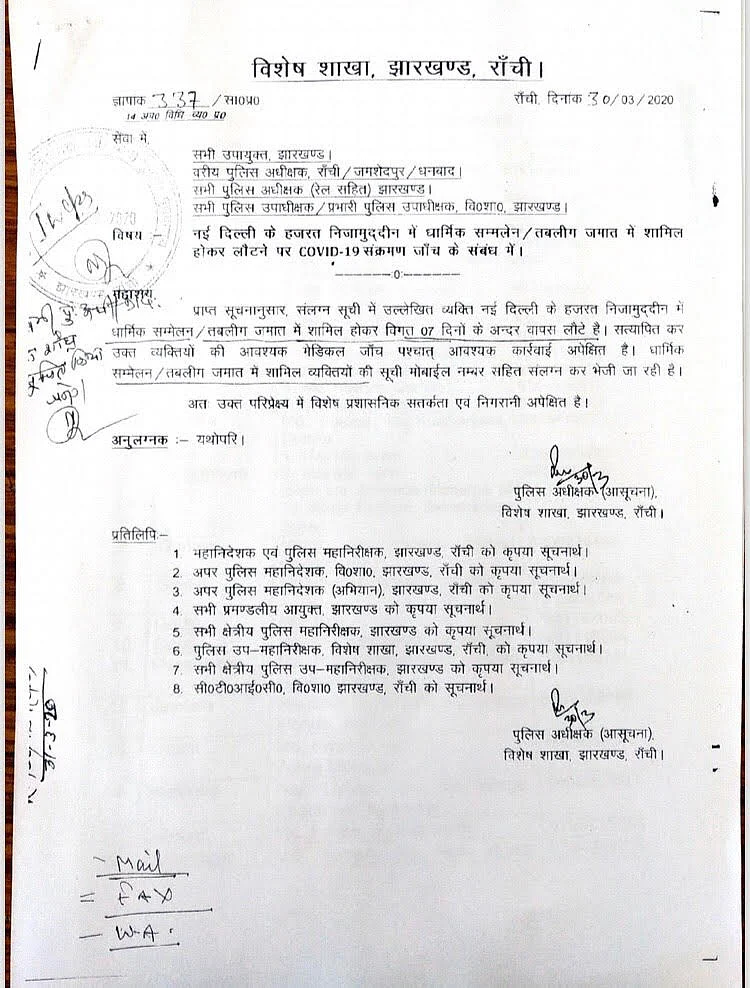 विशेष शाखा, झारखण्ड, राँची।
ज्ञापांक 337 /सा0प्र0
राँची, दिनांक 30/03/2020
14 अप0 विधि व्य0 प्र0
सेवा में,
सभी उपायुक्त, झारखण्ड।
वरीय पुलिस अधीक्षक, राँची/जमशेदपुर/धनबाद।
सभी पुलिस अधीक्षक (रेल सहित) झारखण्ड।
सभी पुलिस उपाधीक्षक/प्रभारी पुलिस उपाधीक्षक, वि0शा0, झारखण्ड।
2020
विषय :– नई दिल्ली के हजरत निजामुद्दीन में धार्मिक सम्मलेन/तबलीग जमात में शामिल
होकर लौटने पर COVID-19 संक्रमण जाँच के संबंध में।
———0———
झारखण्ड
महाशय,
प्राप्त सूचनानुसार, संलग्न सूची में उल्लेखित व्यक्ति नई दिल्ली के हजरत निजामुद्दीन में
धार्मिक सम्मेलन/तबलीग जमात में शामिल होकर विगत 07 दिनों के अन्दर वापस लौटे है। सत्यापित कर
उक्त व्यक्तियों की आवश्यक मेडिकल जाँच पश्चात् आवश्यक कार्रवाई अपेक्षित है। धार्मिक
सम्मेलन/तबलीग जमात में शामिल व्यक्तियों की सूची मोबाईल नम्बर सहित संलग्न कर भेजी जा रही है।
अतः उक्त परिप्रेक्ष्य में विशेष प्रशासनिक सतर्कता एवं निगरानी अपेक्षित है।
अनुलग्नक :– यथोपरि।
30/3
पुलिस अधीक्षक (आसूचना),
विशेष शाखा, झारखण्ड, राँची।
प्रतिलिपि:–
1. महानिदेशक एवं पुलिस महानिरीक्षक, झारखण्ड, राँची को कृपया सूचनार्थ।
2. अपर पुलिस महानिदेशक, वि0शा0, झारखण्ड, राँची को कृपया सूचनार्थ।
3. अपर पुलिस महानिदेशक (अभियान), झारखण्ड, राँची को कृपया सूचनार्थ।
4. सभी प्रमण्डलीय आयुक्त, झारखण्ड को कृपया सूचनार्थ।
5. सभी क्षेत्रीय पुलिस महानिरीक्षक, झारखण्ड को कृपया सूचनार्थ।
6. पुलिस उप–महानिरीक्षक, विशेष शाखा, झारखण्ड, राँची, को कृपया सूचनार्थ।
7. सभी क्षेत्रीय पुलिस उप–महानिरीक्षक, झारखण्ड को कृपया सूचनार्थ।
8. सी0टी0आई0सी0, वि0शा0 झारखण्ड, राँची को सूचनार्थ।
30/3
पुलिस अधीक्षक (आसूचना),
विशेष शाखा, झारखण्ड, राँची।
- Mail
= FAX
- W.A.